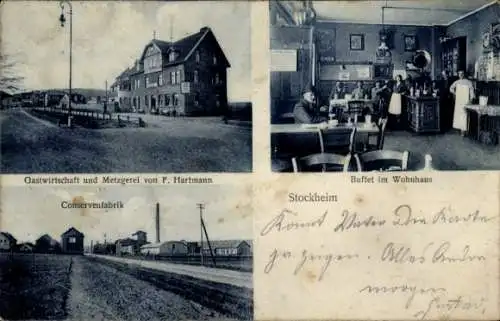 Gastwirtschaft und Metzgerei von F. Hartmann
Buffet im Wohnhaus
Conservenfabrik
Stockheim
Kommt Vater Die Karte
zeigen. Alles Andre
morgen Gustav